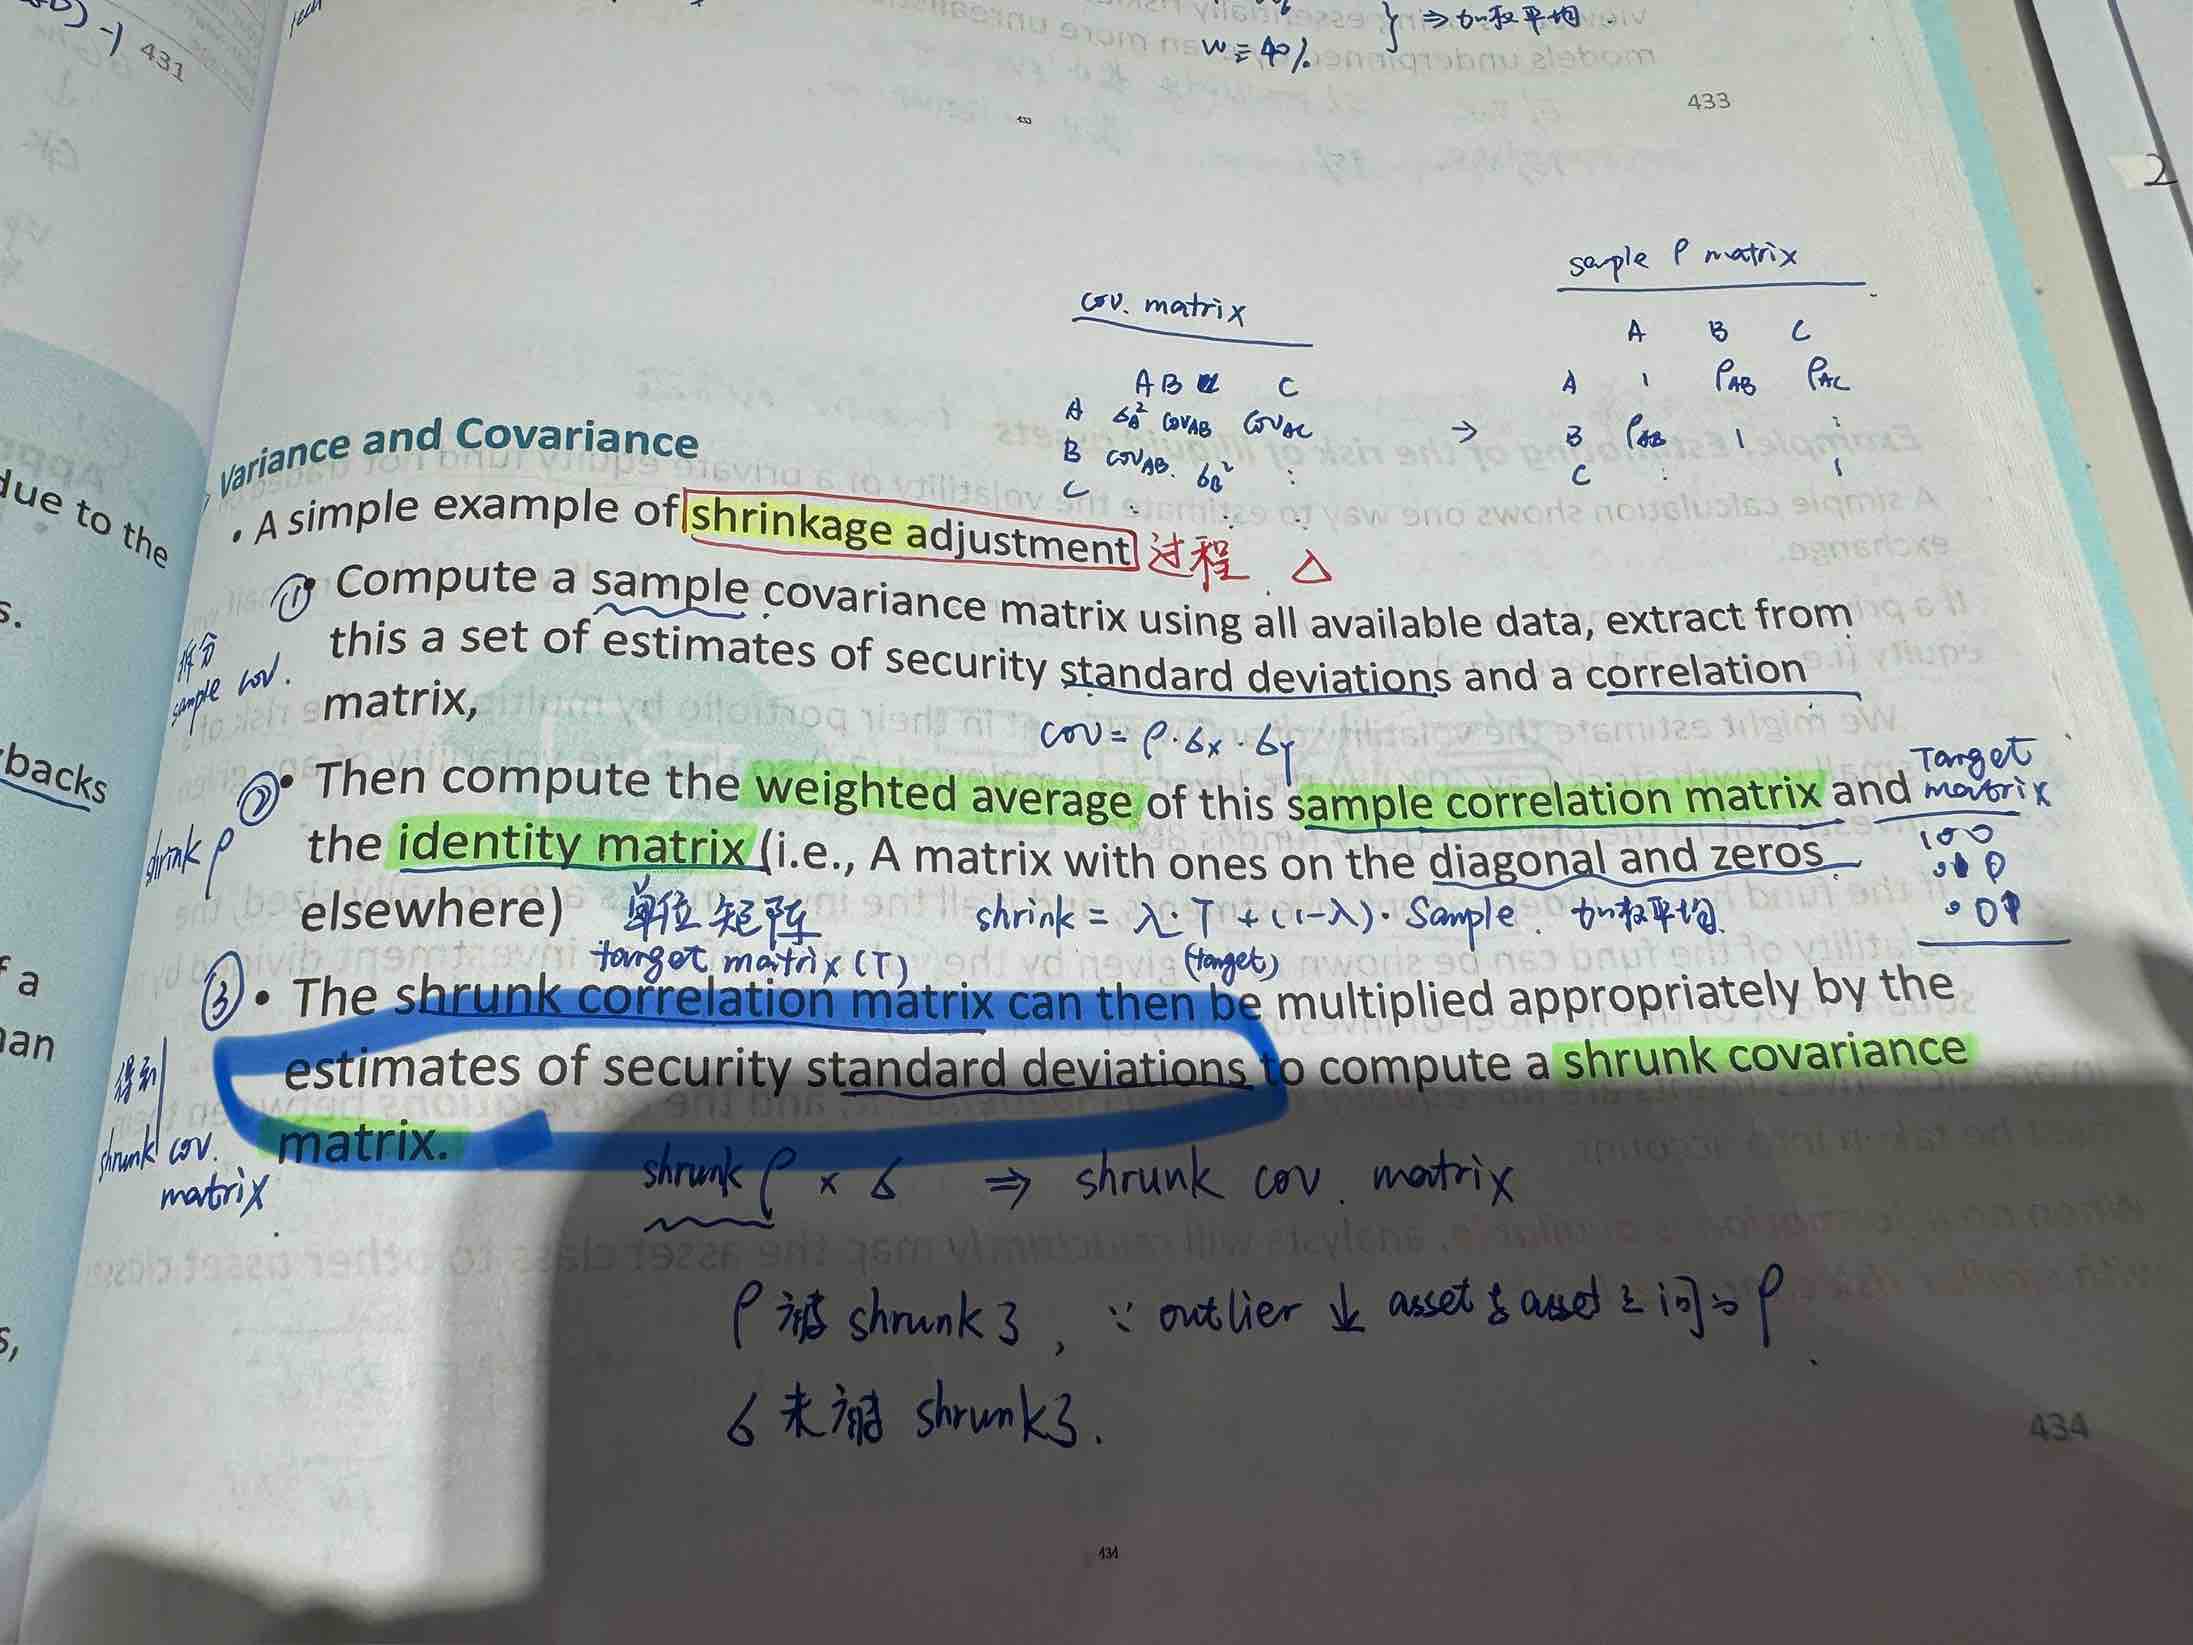 431
⇒ 加权平均
w = 40%
433
433
2
cov. matrix
A B C
A σA² COVAB COVAC
B COVAB. σB² :
C : :
→
sample ρ matrix
A B C
A 1 ρAB ρAC
B ρAB 1 :
C : 1
Variance and Covariance
• A simple example of shrinkage adjustment 过程 △
① • Compute a sample covariance matrix using all available data, extract from
this a set of estimates of security standard deviations and a correlation
matrix,
拆分
sample cov.
cov = ρ·σx·σy
② • Then compute the weighted average of this sample correlation matrix and
the identity matrix (i.e., A matrix with ones on the diagonal and zeros
elsewhere)
shrink ρ
Target
matrix
1 0 0
0 1 0
0 0 1
单位矩阵
target matrix (T)
shrink = λ·T + (1-λ)·Sample. 加权平均.
(target)
③ • The shrunk correlation matrix can then be multiplied appropriately by the
estimates of security standard deviations to compute a shrunk covariance
matrix.
得到
shrunk cov.
matrix
shrunk ρ × σ ⇒ shrunk cov. matrix
ρ 被 shrunk了, ∵ outlier ↓ asset与asset之间的ρ
σ 未被 shrunk了.
434
434
due to the
s.
backs
f a
an
s,